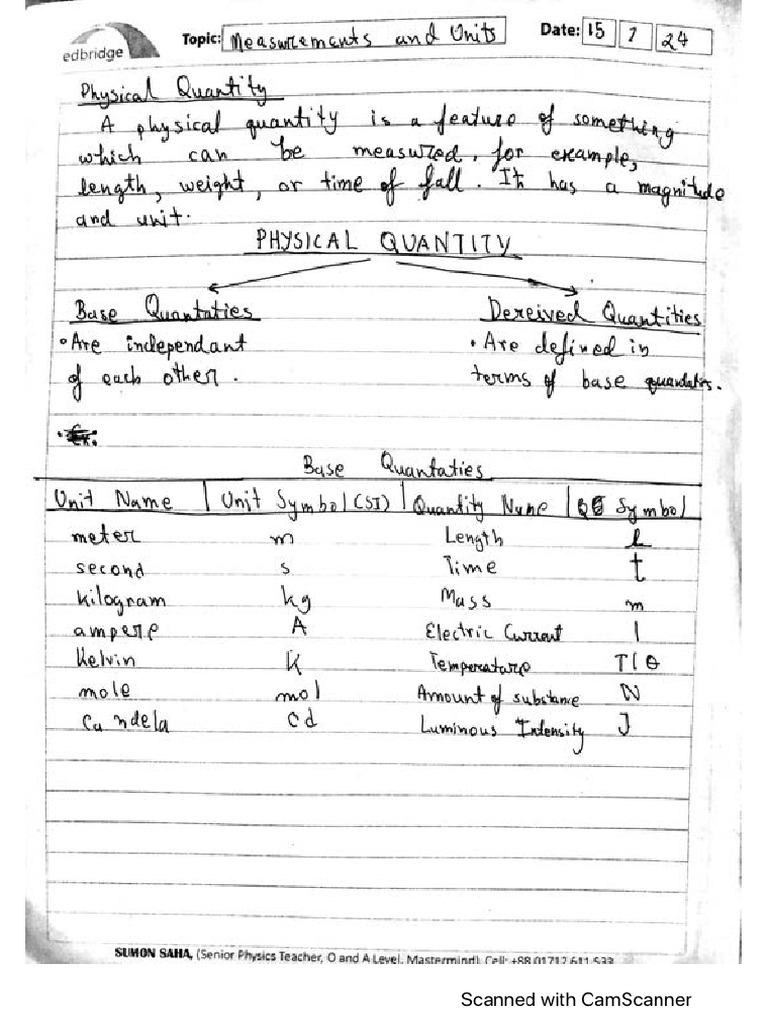 edbridge Topic: Measurements and Units Date: 15 7 24
Physical Quantity
A physical quantity is a feature of something
which can be measured, for example,
length, weight, or time of fall. It has a magnitude
and unit.
PHYSICAL QUANTITY
Base Quantaties Dereived Quantities
• Are independant • Are defined in
of each other. terms of base
Base Quantaties
Unit Name | Unit Symbol (SI) | Quantity Nune | Symbol
meter m Length l
second s Time t
kilogram kg Mass m
ampere A Electric Current I
Kelvin K Temperature T/θ
mole mol Amount of substance N
Candela Cd Luminous Intensity J
SUMON SAHA, (Senior Physics Teacher, O and A Level, Mastermind), Cell: +88 01712 611 533
Scanned with CamScanner